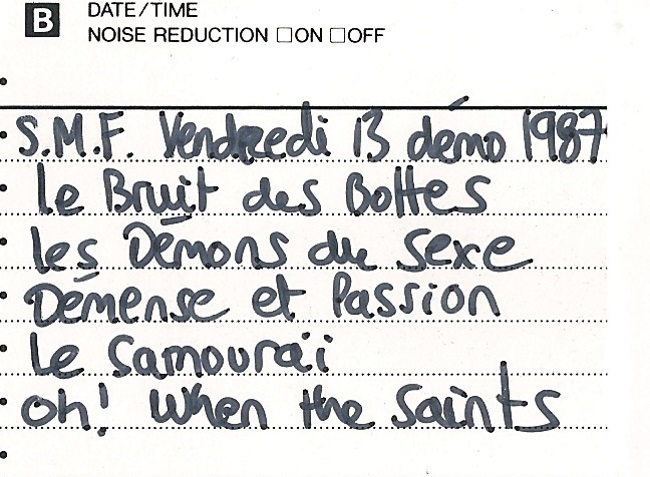 B DATE/TIME
NOISE REDUCTION □ON □OFF
S.M.F. Vendredi 13 démo 1987
le Bruit des Bottes
les Démons du Sexe
Démense et Passion
Le Samouraï
oh! When the Saints